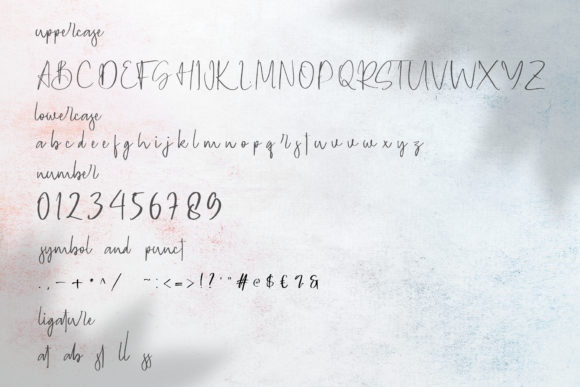 uppercase
ABCDEFGHIJKLMNOPQRSTUVWXYZ
lowercase
a b c d e f g h i j k l m n o p q r s t u v w x y z
number
0123456789
symbol and punct
. , - + * ^ / ~ : < = > ! ? ' " # @ $ € % &
ligature
at ab st ll ss